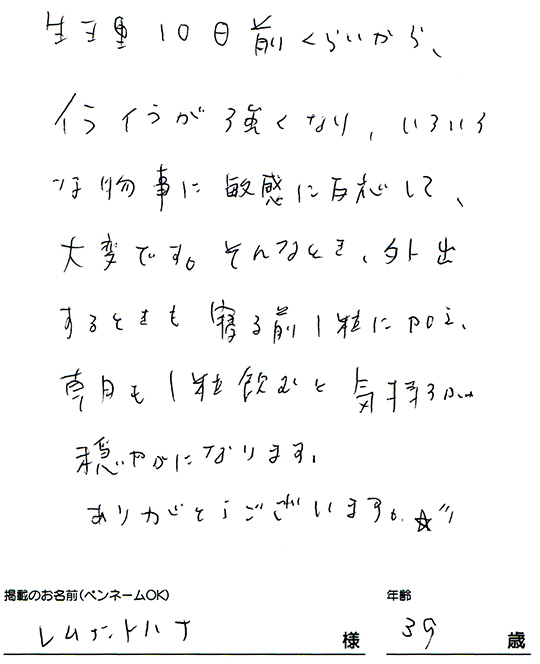 生理10日前くらいから、
イライラが強くなり、いろいろ
な物事に敏感に反応して、
大変です。そんなとき、外出
するときも寝る前1粒に加え、
朝も1粒飲むと気持ちが
穏やかになります。
ありがとうございます。☆
掲載のお名前(ペンネームOK)
様
年齢
39
歳